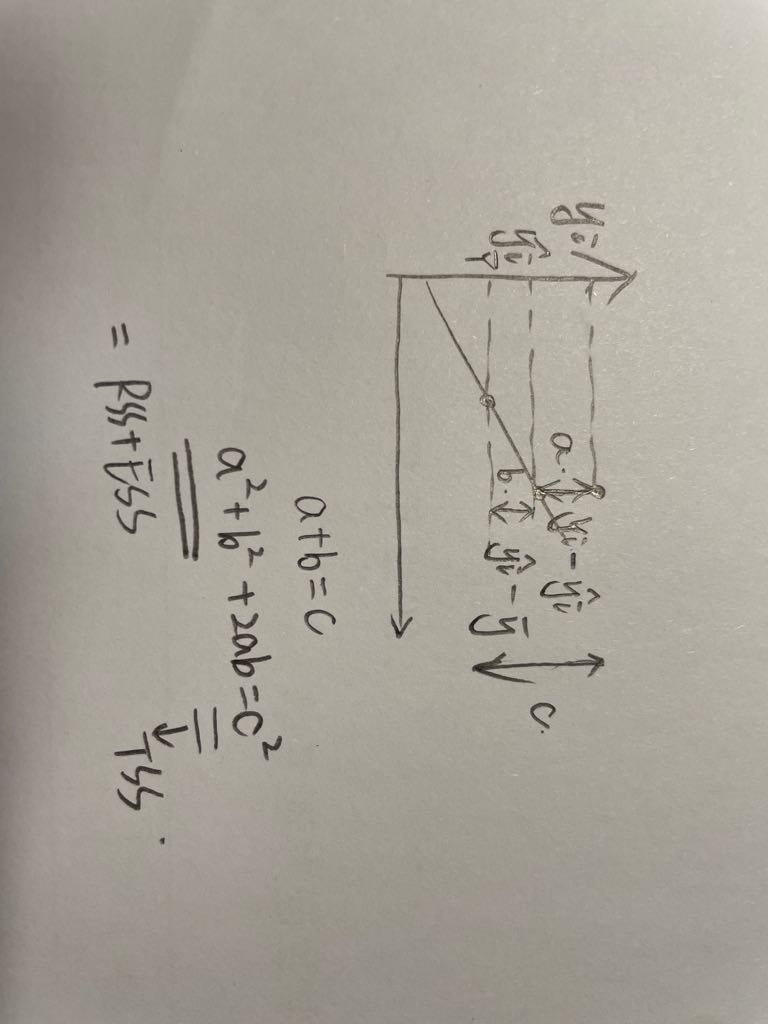 yᵢ
ŷᵢ
ȳ
a.
yᵢ - ŷᵢ
b.
ŷᵢ - ȳ
c.
a+b=c
a²+b²+2ab=c²
= RSS+ESS
↓
TSS.